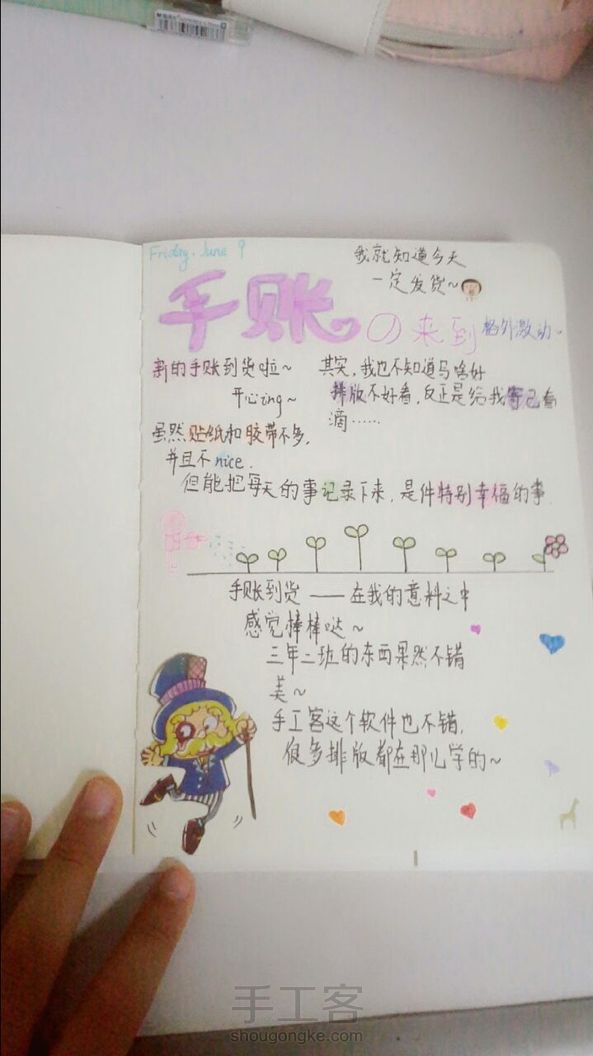 Friday. June 9
我就知道今天
一定发货~
手账の来到 格外激动~
新的手账到货啦~
开心ing~
虽然贴纸和胶带不多,
并且不nice.
其实,我也不知道写啥好
排版不好看,反正是给我自己看
滴……
但能把每天的事记录下来,是件特别幸福的事
手账到货——在我的意料之中
感觉棒棒哒~
三年二班的东西果然不错
美~
手工客这个软件也不错,
很多排版都在那儿学的~
手工客
shougongke.com